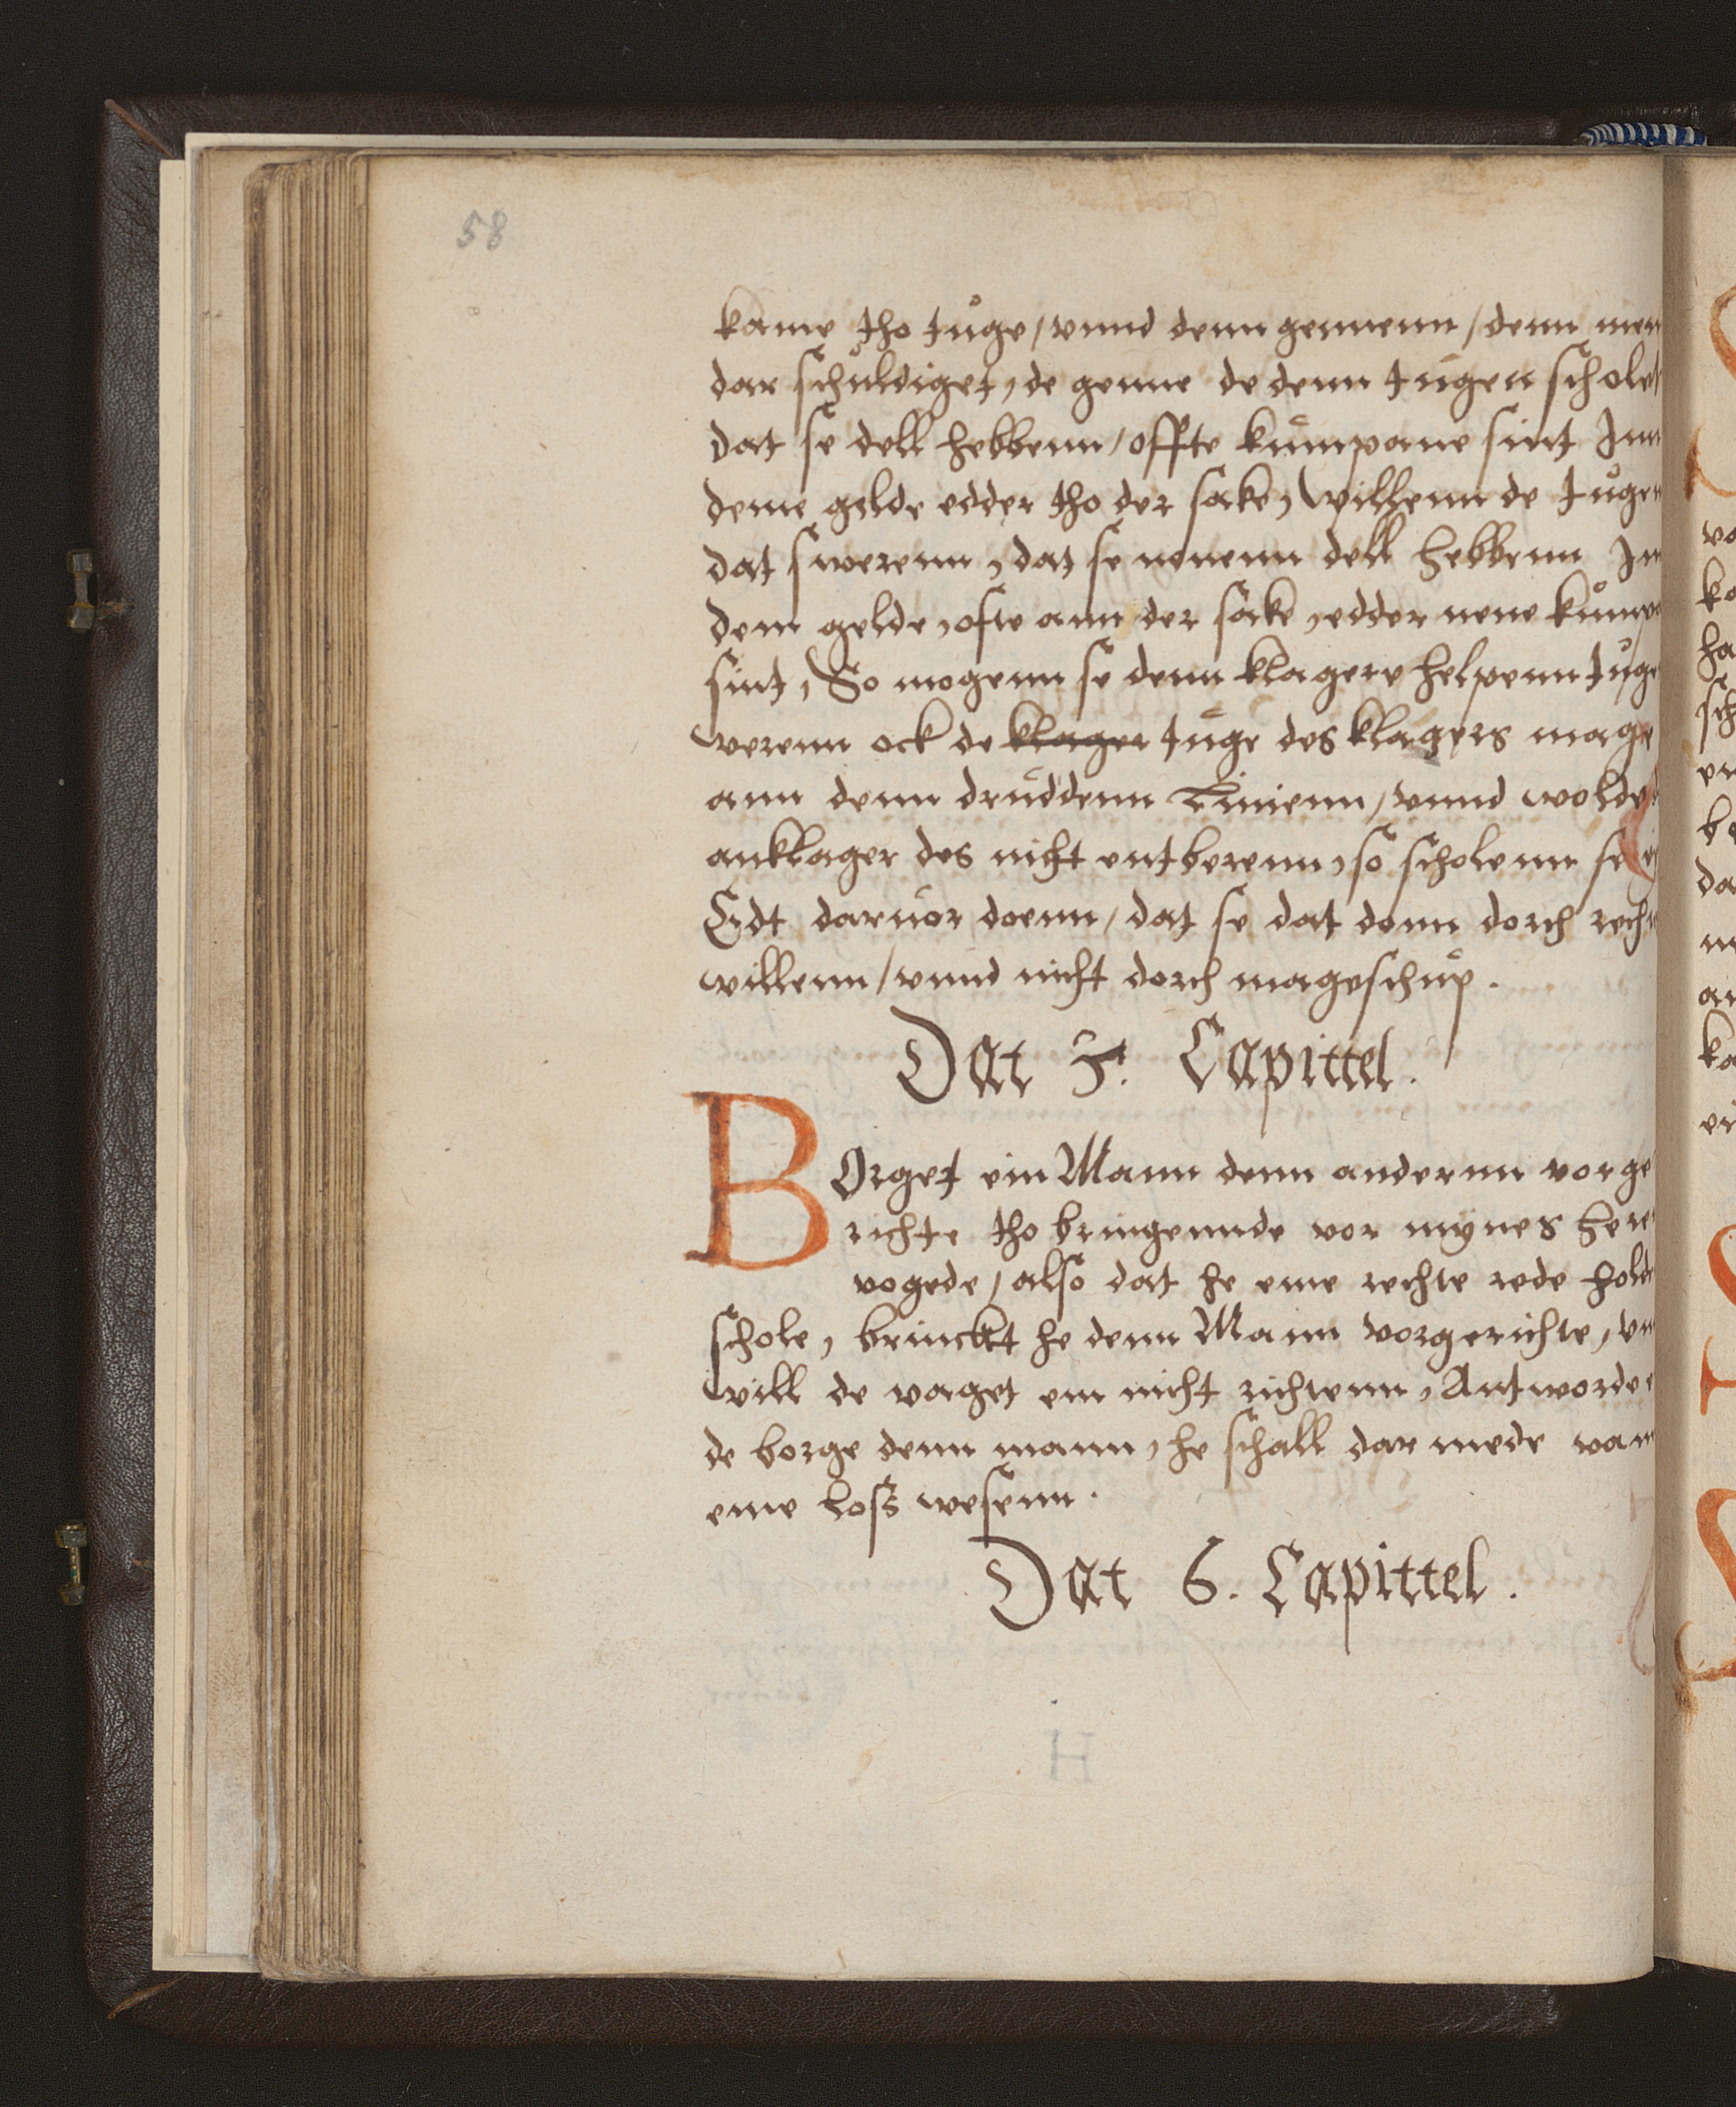 58
kame tho tůge / vnnd denn gennenn / denn men
dar schůldiget, de genne de denn tůgen scholen
dat se dell hebbenn / offte kůmpane sint Inn
deme gelde edder tho der sake, willenn de tůgen
dat swerenn, dat se nenenn dell hebbenn In
dem gelde, ofte ann der sake, edder nene kůmpa
sint, So mogenn se denn klagere helpenn tůge
werenn ock de klager tůge des klagers mage
ann denn drůddenn Linienn / vnnd wolde
anklager des nicht entberenn, so scholenn se
Edt daruor doenn / dat se dat donn dorch rech
willenn / vnnd nicht dorch mageschůp.
Dat 5. Capittel.
BOrget ein Mann denn andernn vor ge
richte tho bringennde vor mynes here
vogede / also dat he eme rechte rede hold
schole, brinckt he denn Mann vorgerichte, vn
will de vaget em nicht richtenn, Antworde
de borge denn mann, he schall dar mede van
eme loss wesenn.
Dat 6. Capittel.